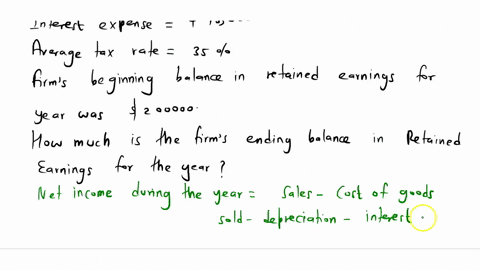 Interest expense =
Average tax rate = 35 %
firm's beginning balance in retained earnings for
year was $ 200000.
How much is the firm's ending balance in Retained
Earnings for the year ?
Net income during the year = Sales - Cost of goods
sold - depreciation - interest